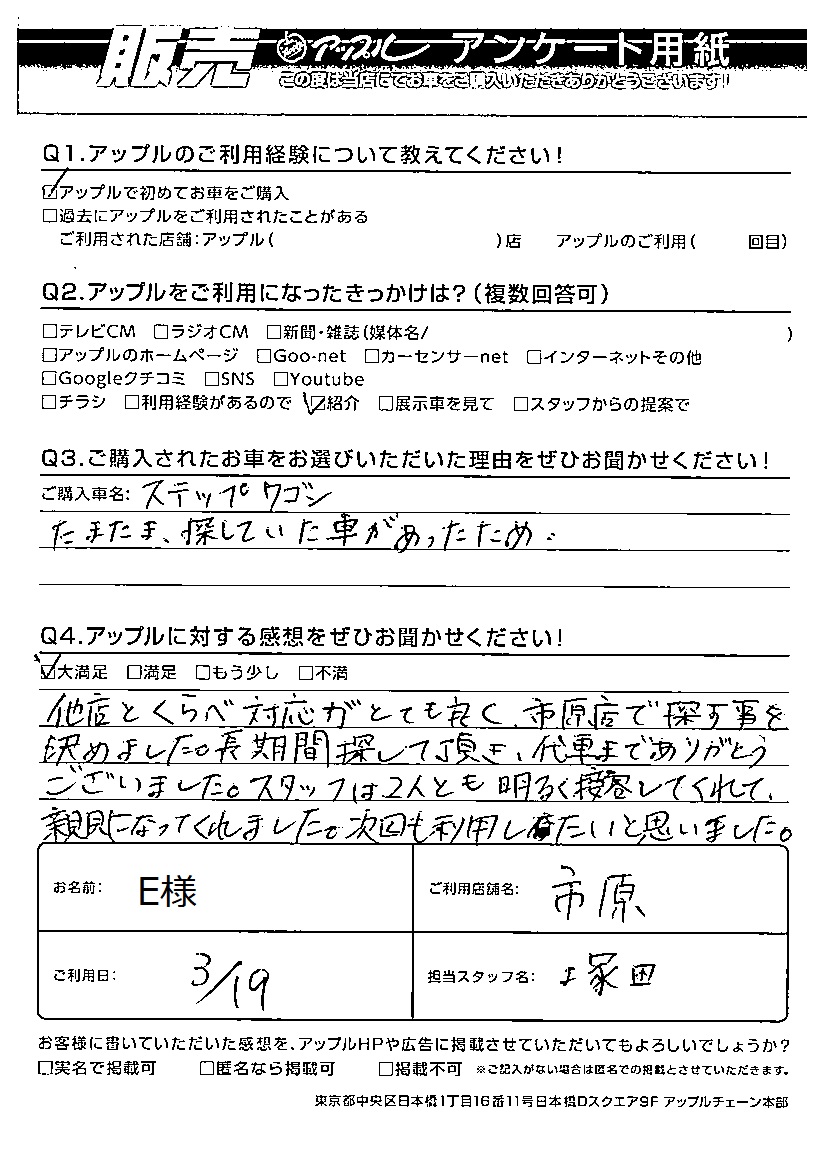 販売 アップル アンケート用紙
この度は当店にてお車をご購入いただきありがとうございます!
Q1.アップルのご利用経験について教えてください!
☑アップルで初めてお車をご購入
□過去にアップルをご利用されたことがある
ご利用された店舗:アップル( )店 アップルのご利用( 回目)
Q2.アップルをご利用になったきっかけは?(複数回答可)
□テレビCM □ラジオCM □新聞・雑誌(媒体名/ )
□アップルのホームページ □Goo-net □カーセンサーnet □インターネットその他
□Googleクチコミ □SNS □Youtube
□チラシ □利用経験があるので ☑紹介 □展示車を見て □スタッフからの提案で
Q3.ご購入されたお車をお選びいただいた理由をぜひお聞かせください!
ご購入車名: ステップワゴン
たまたま、探していた車があったため.
Q4.アップルに対する感想をぜひお聞かせください!
☑大満足 □満足 □もう少し □不満
他店とくらべ対応がとても良く、市原店で探す事を
決めました。長期間探して頂き、代車までありがとう
ございました。スタッフは2人とも明るく接客してくれて、
親身になってくれました。次回も利用したいと思いました。
お名前: E様 ご利用店舗名: 市原
ご利用日: 3/19 担当スタッフ名: 塚田
お客様に書いていただいた感想を、アップルHPや広告に掲載させていただいてもよろしいでしょうか?
□実名で掲載可 □匿名なら掲載可 □掲載不可 ※ご記入がない場合は匿名での掲載とさせていただきます。
東京都中央区日本橋1丁目16番11号日本橋Dスクエア9F アップルチェーン本部